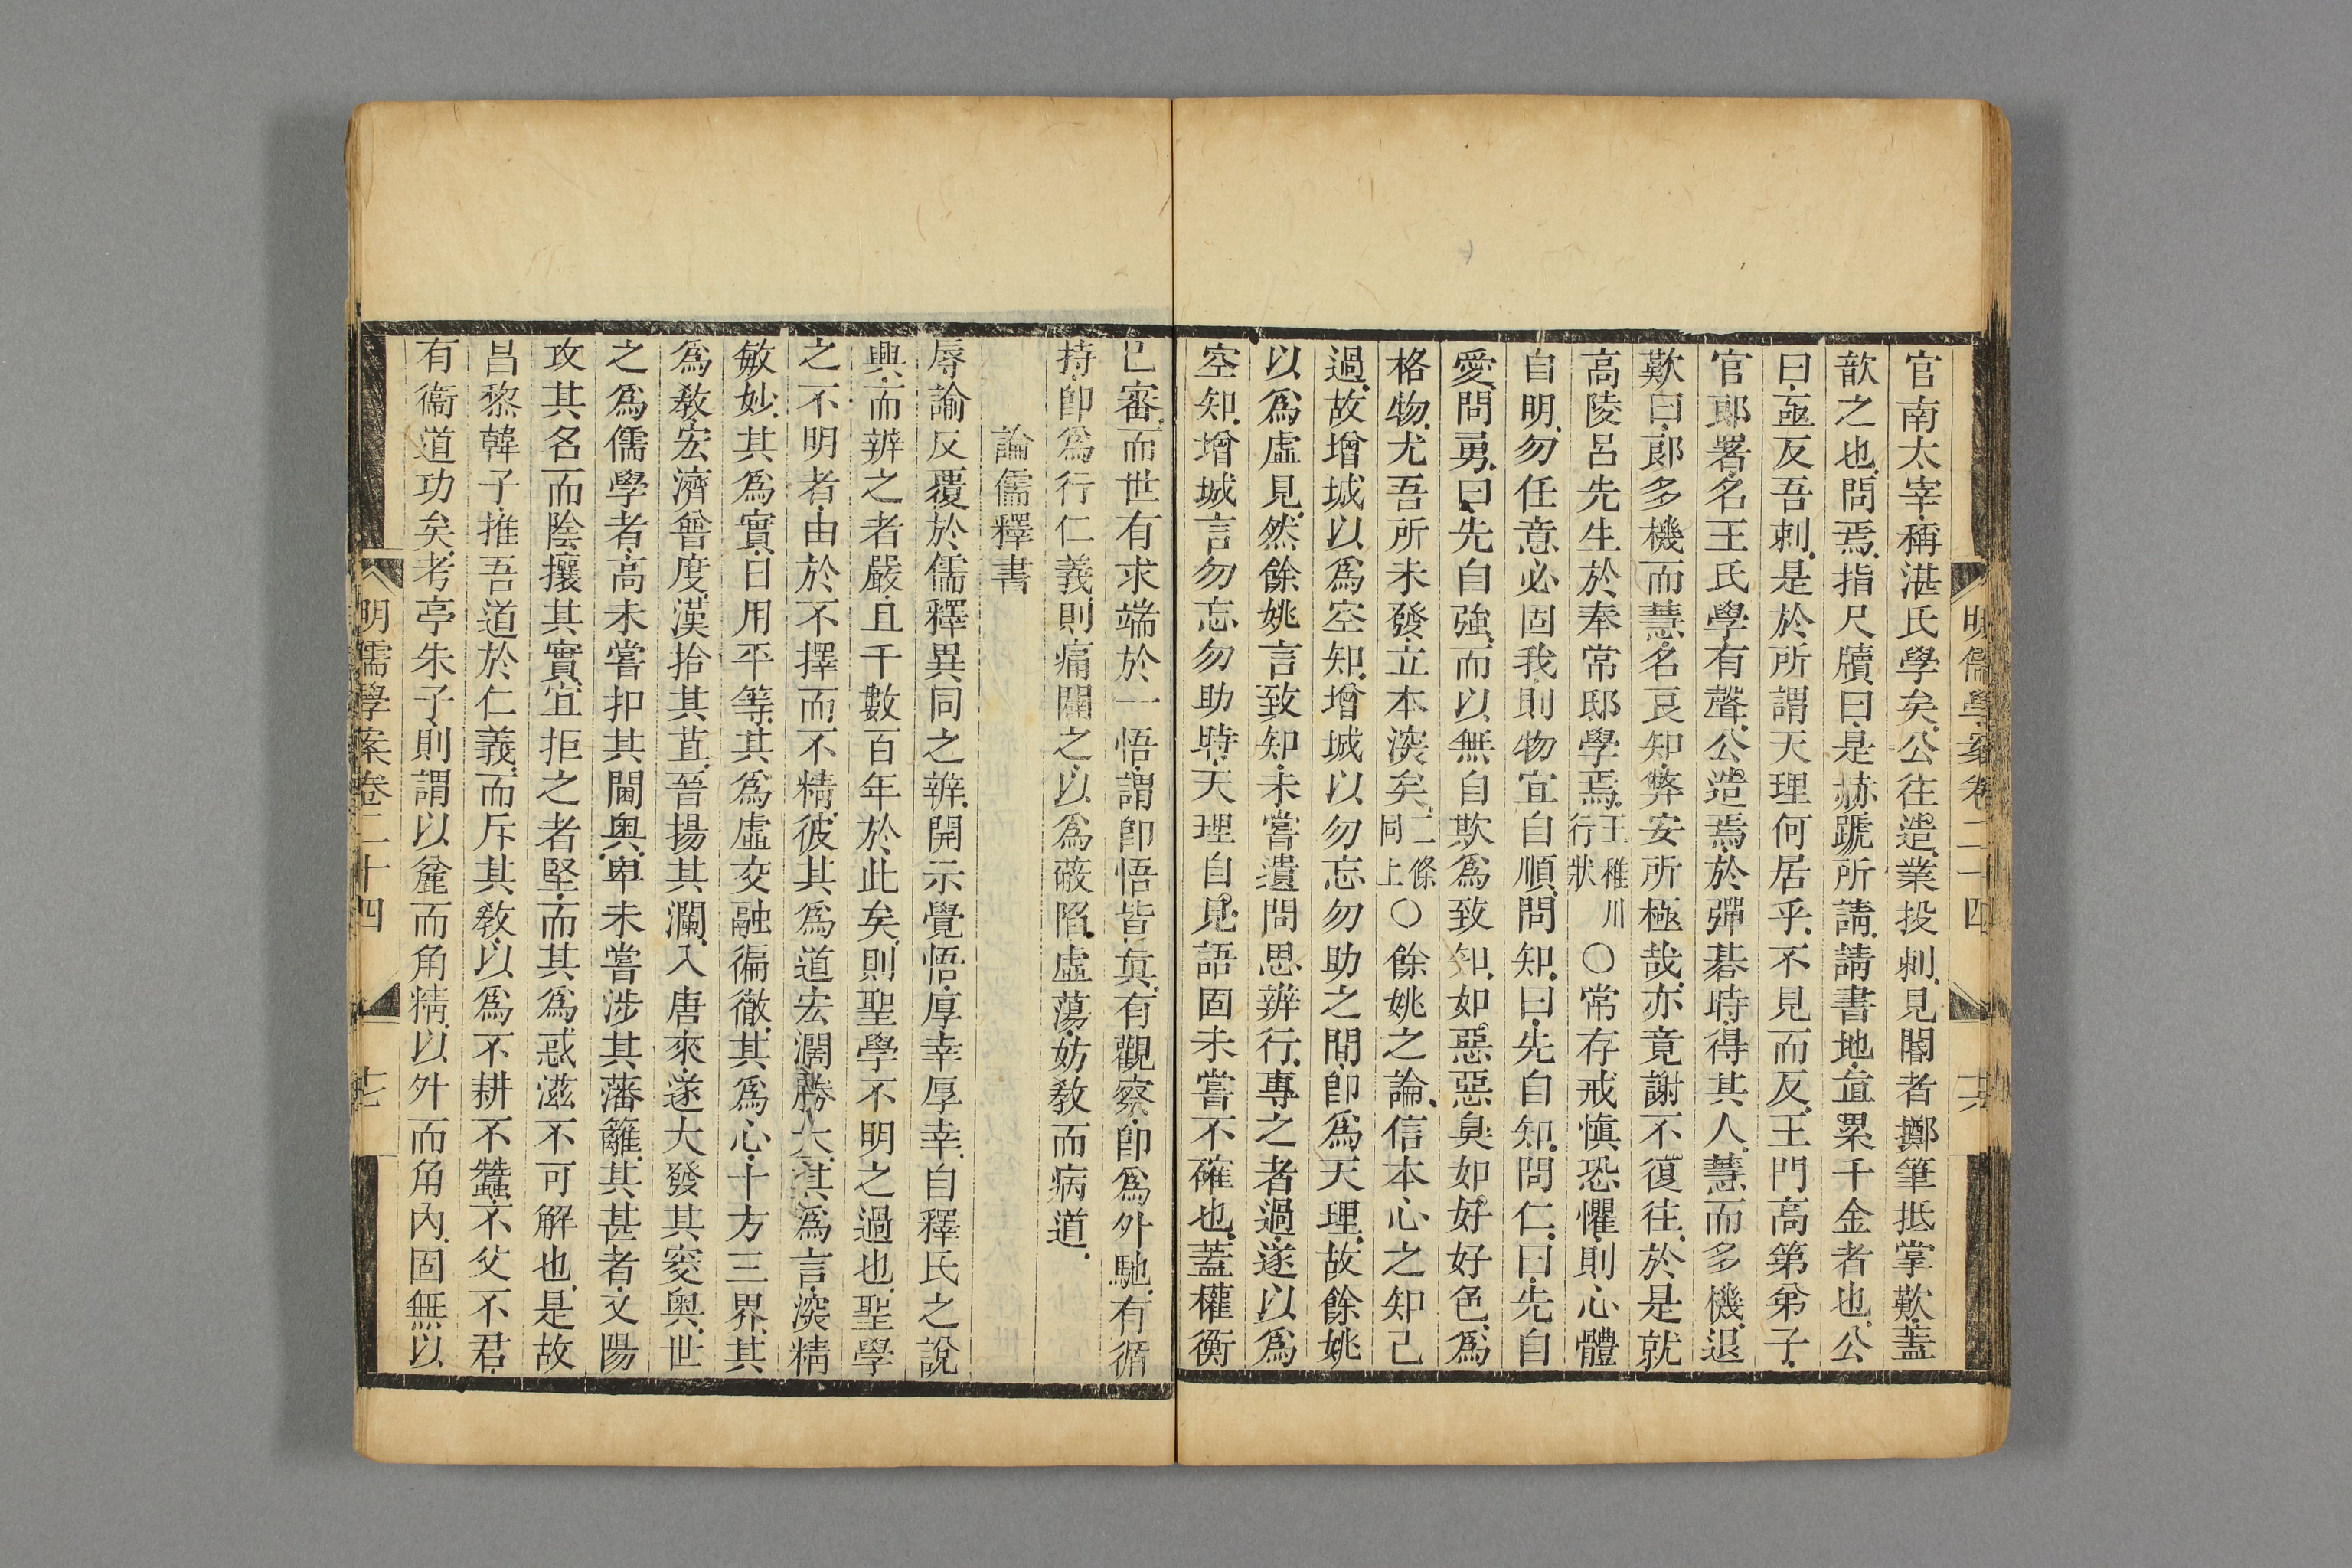 明儒學案卷二十四
十六
官南太宰稱湛氏學矣公往造業投剌見閽者擲筆抵掌歎蓋
歆之也問焉指尺牘曰是赫蹏所請請書地直累千金者也公
曰亟反吾剌是於所謂天理何居乎不見而反王門高第弟子
官郎署名王氏學有聲公造焉於彈碁時得其人慧而多機退
歎曰郎多機而慧名良知弊安所極哉亦竟謝不復往於是就
高陵呂先生於奉常邸學焉王稚川行狀〇常存戒慎恐懼則心體
自明勿任意必固我則物宜自順問知曰先自知問仁曰先自
愛問勇曰先自強而以無自欺為致知如惡惡臭如好好色為
格物尤吾所未發立本深矣二條同上〇餘姚之論信本心之知已
過故增城以為空知增城以勿忘勿助之間卽為天理故餘姚
以為虛見然餘姚言致知未嘗遺問思辨行專之者過遂以為
空知增城言勿忘勿助時天理自見語固未嘗不確也蓋權衡
已審而世有求端於一悟謂卽悟皆眞有觀察卽為外馳有循
持卽為行仁義則痛闢之以為蔽陷虛蕩妨敎而病道
論儒釋書
辱諭反覆於儒釋異同之辨開示覺悟厚幸厚幸自釋氏之說
興而辨之者嚴且千數百年於此矣則聖學不明之過也聖學
之不明者由於不擇而不精彼其為道宏濶勝大其為言深精
敏妙其為實日用平等其為虛交融徧徹其為心十方三界其
為敎宏濟普度漢拾其苴晉揚其瀾入唐來遂大發其窔奧世
之為儒學者高未嘗扣其閫奧卑未嘗涉其藩籬其甚者又陽
攻其名而陰攘其實宜拒之者堅而其為惑滋不可解也是故
昌黎韓子推吾道於仁義而斥其敎以為不耕不蠶不父不君
有衞道功矣考亭朱子則謂以麤而角精以外而角內固無以
明儒學案卷二十四
十七